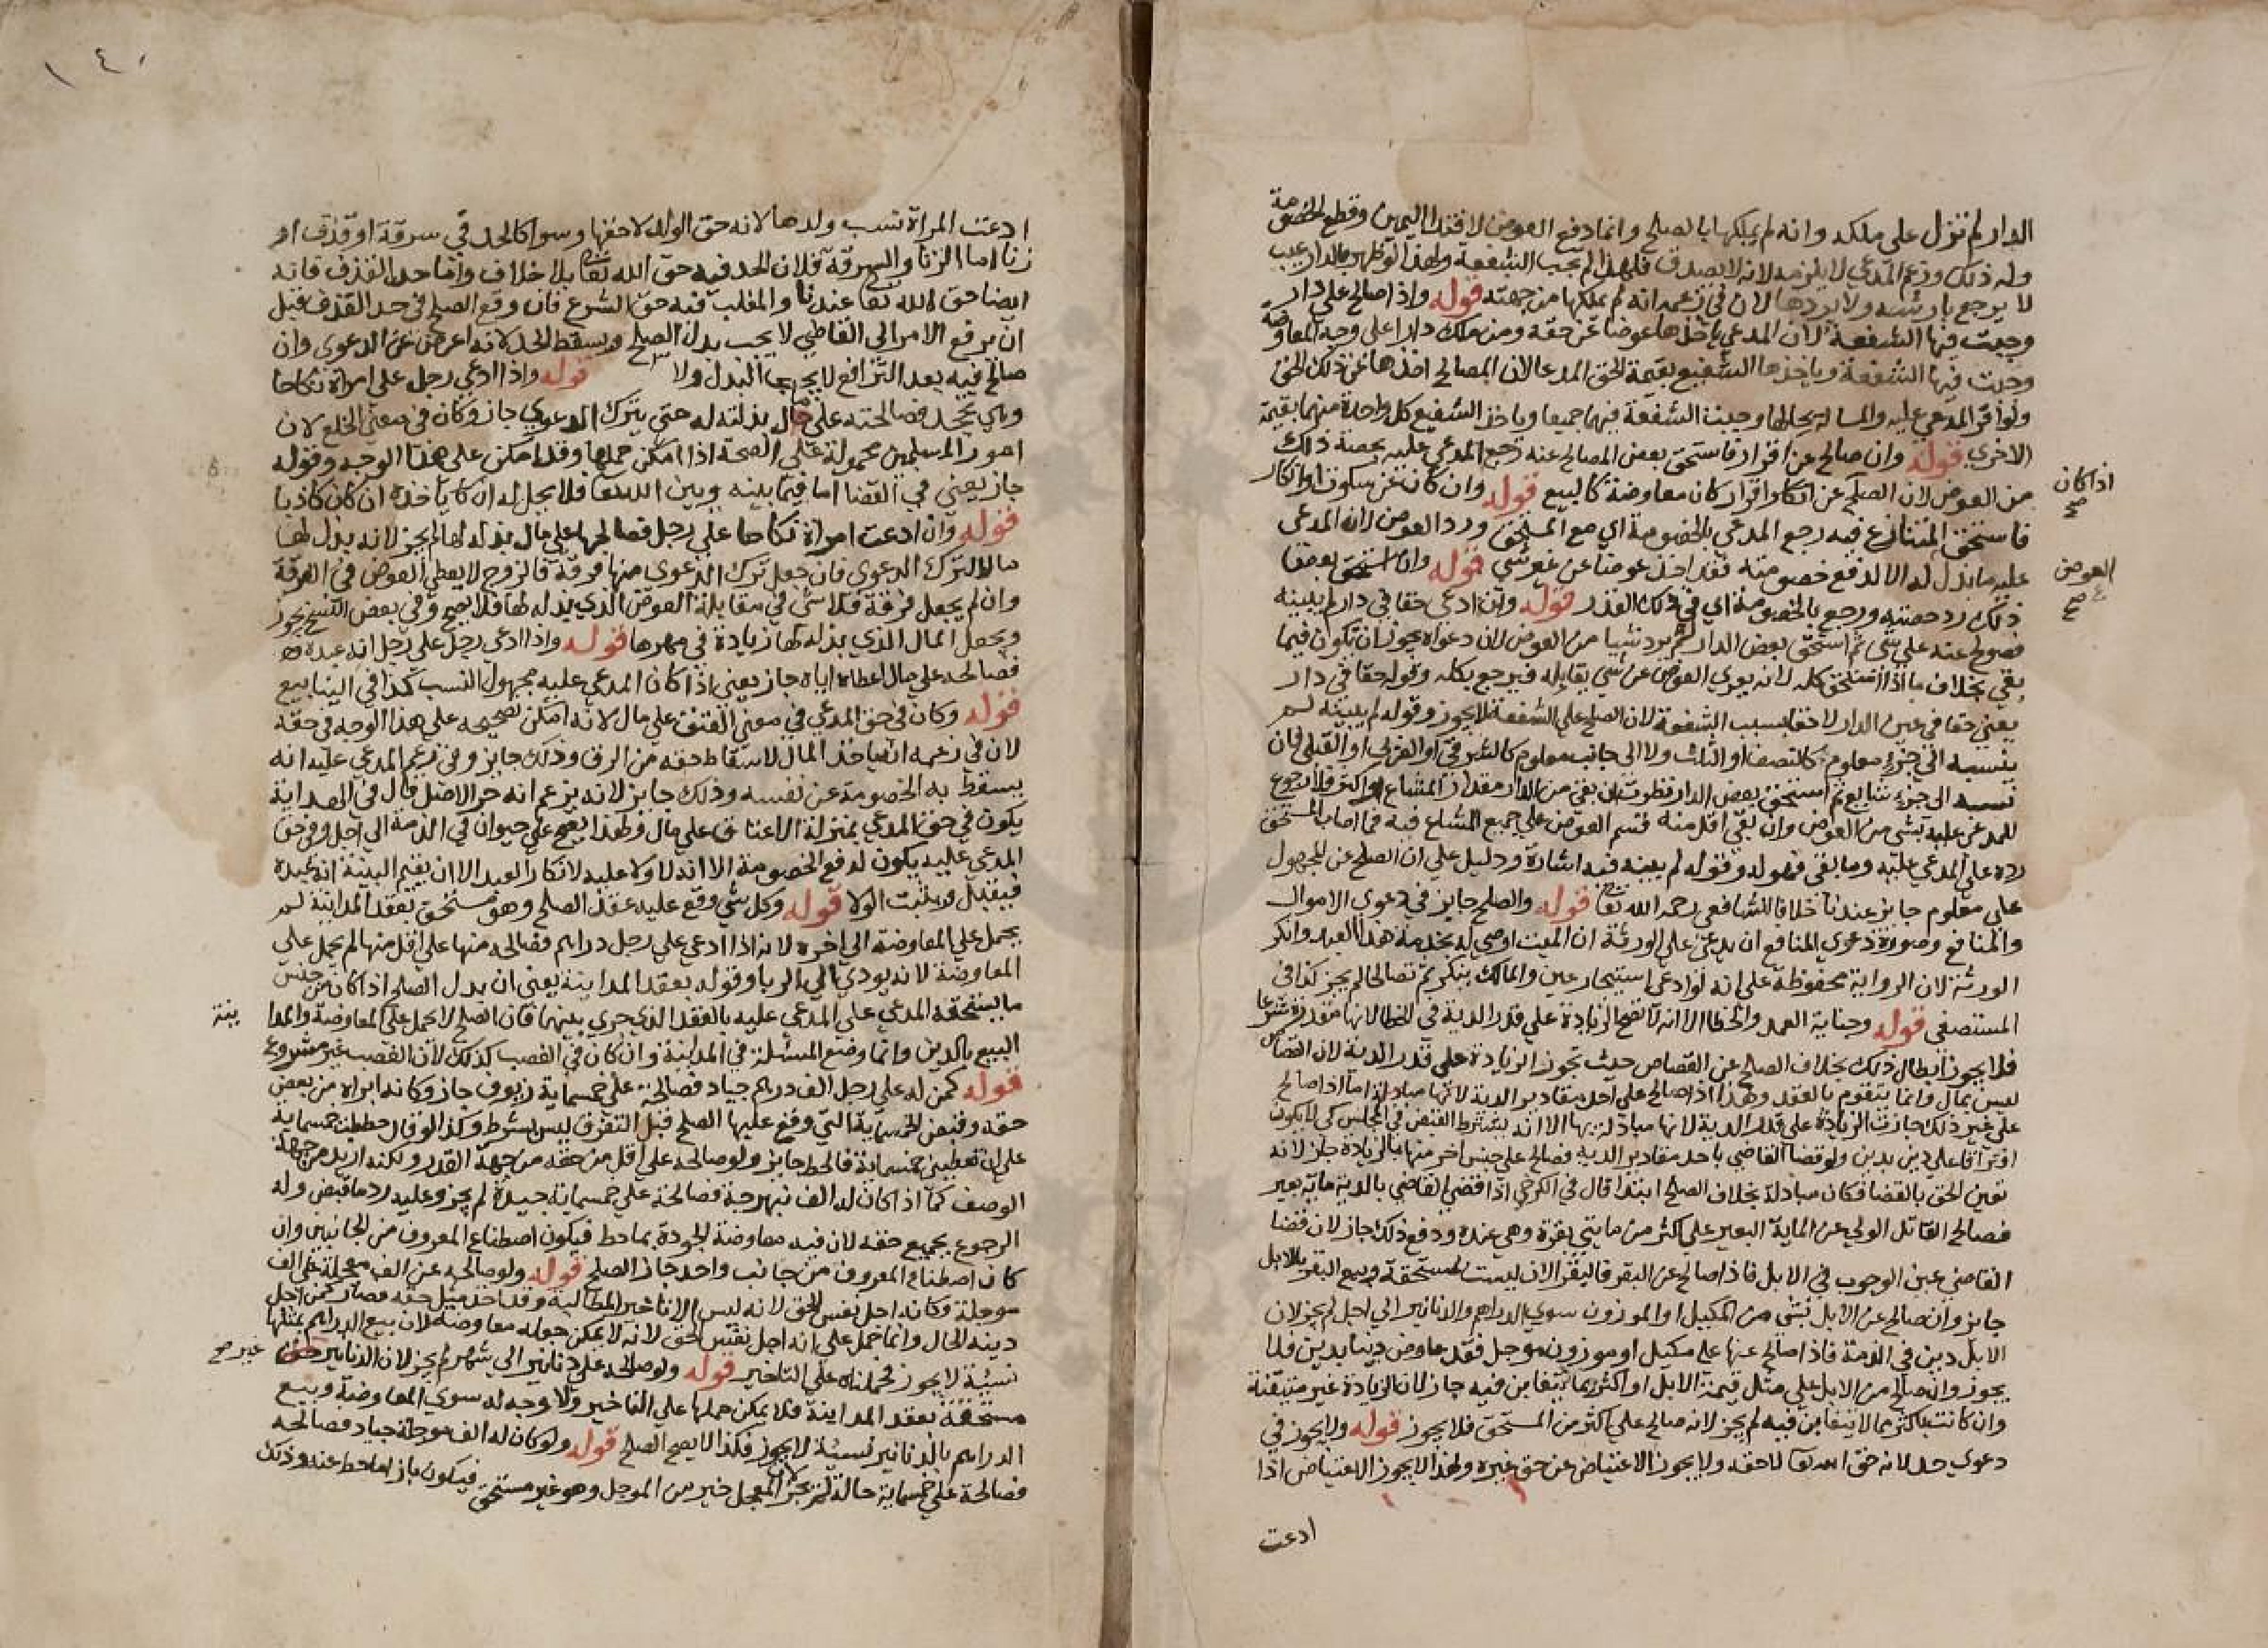 الدار لم تزل علي ملكه وانه لم يملكها بالصلح وانما دفع العوض لافتداء اليمين وقطع الخصومة
وله ذلك وزعم المدعي لا يلزمه لانه لا يصدق فلهذا لم يجب الشفعة ولهذا لو ظهر بالدار عيب
لا يرجع بارشه ولا يردها لان في زعمه انه لم يملكها من جهته قوله واذا صالح علي دار
وجبت فيها الشفعة لان المدعي ياخذها عوضا عن حقه ومن ملك دارا علي وجه المعاوضة
وجبت فيها الشفعة وياخذها الشفيع بقيمة الحق المدعا لان المصالح اخذها عن ذلك الحق
ولو اقر المدعي عليه والمسالة بحالها وجبت الشفعة فيهما جميعا وياخذ الشفيع كل واحدة منهما بقيمة
الاخري قوله وان صالح عن اقرار فاستحق بعض المصالح عنه رجع المدعي عليه بحصة ذلك
من العوض لان الصلح عن اقرار كان معاوضة كالبيع قوله وان كان عن سكوت او انكار
اذا كان صح
فاستحق المتنازع فيه رجع المدعي بالخصومة اي مع المستحق ورد العوض لان المدعي
عليه ما بذل له الا لدفع خصومته فقد اخذ عوضا عن غير شي قوله وان استحق بعض
العوض صح
ذلك رد حصته ورجع بالخصومة اي في ذلك القدر قوله وان ادعي حقا في دار لم يبينه
فصولح عنه علي شي ثم استحق بعض الدار لم يرد شيا من العوض لان دعواه يجوز ان تكون فيما
بقي بخلاف ما اذا استحق كله لانه يعري العوض عن شي يقابله فيرجع بكله وقوله حقا في دار
يعني حقا في عين الدار لا حقا بسبب الشفعة لان الصلح علي الشفعة لا يجوز وقوله لم يبينه لم
ينسبه الي جزء معلوم كالنصف او الثلث ولا الي جانب معلوم كالشرقي او الغربي او القبلي فان
نسبه الي جزء شايع ثم استحق بعض الدار فظهرت ان بقي من الدار مقدار المشاع او اكثر فلا رجوع
للمدعي عليه بشي من العوض وان بقي اقل منه قسم العوض علي جميع المشاع فيه فما اصاب المستحق
رده علي المدعي عليه وما بقي فهو له وقوله لم يبينه فيه اشارة ودليل علي ان الصلح عن المجهول
علي معلوم جايز عندنا خلافا للشافعي رحمه الله تعا قوله والصلح جايز في دعوي الاموال
والمنافع وصورة دعوي المنافع ان يدعي علي الورثة ان الميت اوصي له بخدمة هذا العبد وانكر
الورثة لان الرواية محفوظة علي انه لو ادعي استيجار عين والمالك ينكر ثم تصالحا لم يجز كذا في
المستصفي قوله وجناية العمد والخطا الا انه لا تصح الزيادة علي قدر الدية في الخطا لانها مقدرة شرعا
فلا يجوز ابطال ذلك بخلاف الصلح عن القصاص حيث تجوز الزيادة علي قدر الدية لان القصاص
ليس بمال وانما يتقوم بالعقد وهذا اذا صالح علي احد مقادير الدية لانها مبادلة اما اذا صالح
علي غير ذلك جازت الزيادة علي قدر الدية لانها مبادلة بها الا انه يشترط القبض في المجلس كي لا يكون
افتراقا علي دين بدين ولو قضا القاضي باحد مقادير الدية فصالح علي جنس اخر منها بالزيادة جاز لانه
تعين الحق بالقضا فكان مبادلة بخلاف الصلح ابتدا قال في الكرخي اذا قضي القاضي بالدية ماية بعير
فصالح القاتل الولي عن الماية البعير علي اكثر من مايتي بقرة وهي عنده ودفع ذلك جاز لان قضا
القاضي عين الوجوب في الابل فاذا صالح عن البقر فالبقر الان ليست مستحقة وبيع البقر بالابل
جايز وان صالح عن الابل بشي من المكيل او الموزون سوي الدراهم والدنانير الي اجل لم يجز لان
الابل دين في الذمة فاذا صالح عنها علي مكيل او موزون موجل فقد عاوض دينا بدين فلا
يجوز وان صالح من الابل علي مثل قيمة الابل او اكثر بما يتغابن فيه جاز لان الزيادة غير متيقنة
وان كانت باكثر مما لا يتغابن فيه لم يجز لانه صالح علي اكثر من المستحق فلا يجوز قوله ولا يجوز في
دعوي حد لانه حق الله تعا لا حقه ولا يجوز الاعتياض عن حق غيره ولهذا لا يجوز الاعتياض اذا
ادعت
١٤٠
ادعت المراة نسب ولدها لانه حق الولد لا حقها وسوا كان الحد في سرقة او قذف او
زنا اما الزنا والسرقة فلان الحد فيه حق الله تعا بلا خلاف واما حد القذف فانه
ايضا حق الله تعا عندنا والمغلب فيه حق الشرع فان وقع الصلح في حد القذف قبل
ان يرفع الامر الي القاضي لا يجب بدل الصلح ويسقط الحد لانه اعرض عن الدعوي وان
صالح فيه بعد الترافع لا يجب البدل ولا قوله واذا ادعي رجل علي امراة نكاحا
وهي تجحد فصالحته علي مال بذلته له حتي يترك الدعوي جاز وكان في معني الخلع لان
امور المسلمين محمولة علي الصحة اذا امكن حملها وقد امكن علي هذا الوجه وقوله
جاز يعني في القضا اما فيما بينه وبين الله تعا فلا يحل له ان ياخذه ان كان كاذبا
قوله وان ادعت امراة نكاحا علي رجل فصالحها علي مال بذله لها لم يجز لانه بذل لها
مالا لترك الدعوي فان جعل ترك الدعوي منها فرقة فالزوج لا يعطي العوض في الفرقة
وان لم يجعل فرقة فلا شي في مقابلة العوض الذي بذله لها فلا يصح وفي بعض النسخ يجوز
ويجعل المال الذي بذله لها زيادة في مهرها قوله واذا ادعي رجل علي رجل انه عبده
فصالحه علي مال اعطاه اياه جاز يعني اذا كان المدعي عليه مجهول النسب كذا في الينابيع
قوله وكان في حق المدعي في معني العتق علي مال لانه امكن تصحيحه علي هذا الوجه في حقه
لان في زعمه انه ياخذ المال لاسقاط حقه من الرق وذلك جايز وفي زعم المدعي عليه انه
يسقط به الخصومة عن نفسه وذلك جايز لانه يزعم انه حر الاصل قال في الهداية
يكون في حق المدعي بمنزلة الاعتاق علي مال ولهذا يصح علي حيوان في الذمة الي اجل وفي حق
المدعي عليه يكون لدفع الخصومة الا انه لا ولا عليه لانكار العبد الا ان يقيم البينة انه عبده
فيقبل ويثبت الولا قوله وكل شي وقع عليه عقد الصلح وهو مستحق بعقد المداينة لم
يحمل علي المعاوضة الي اخره لانه اذا ادعي علي رجل دراهم فصالحه منها علي اقل منها لم يحمل علي
المعاوضة لانه يودي الي الربا وقوله بعقد المداينة يعني ان بدل الصلح اذا كان من جنس
ما يستحقه المدعي علي المدعي عليه بالعقد الذي جري بينهما فان الصلح لا يحمل علي المعاوضة والمدا
ينة
البيع بالدين وانما وضع المسئلة في المداينة وان كان في الغصب كذلك لان الغصب غير مشروع
قوله كمن له علي رجل الف درهم جياد فصالحه علي خمسماية زيوف جاز وكانه ابراه من بعض
حقه وقبض الخمسماية التي وقع عليها الصلح قبل التفرق ليس بشرط وكذا لو قال حططت خمسماية
علي ان تعطيني خمسماية فالحط جايز ولو صالحه علي اقل من حقه من جهة القدر ولكنه ازيد من جهة
الوصف كما اذا كان له الف نبهرجة فصالحه علي خمسماية جيدة لم يجز وعليه رد ما قبض وله
الرجوع بجميع حقه لان فيه معاوضة الجودة بما حط فيكون اصطناع المعروف من الجانبين وان
كان اصطناع المعروف من جانب واحد جاز الصلح قوله ولو صالحه عن الف معجلة علي الف
موجلة وكانه اجل نفس الحق لانه ليس الا تاخير المطالبة وقد اخذ مثل حقه فصار كمن اجل
دينه الحال وانما حمل علي انه اجل نفس الحق لانه لا يمكن جعله معاوضة لان بيع الدراهم بمثلها
نسيئة لا يجوز فحملناه علي التاخير قوله ولو صالحه علي دنانير الي شهر لم يجز لان الدنانير
غير صح
مستحقة بعقد المداينة فلا يمكن حملها علي التاخير ولا وجه له سوي المعاوضة وبيع
الدراهم بالدنانير نسيئة لا يجوز فكذا لا يصح الصلح قوله ولو كان له الف موجلة جياد فصالحه
فصالحه علي خمسماية حالة لم يجز لان المعجل خير من الموجل وهو غير مستحق فيكون بازا ما حط عنه وذلك